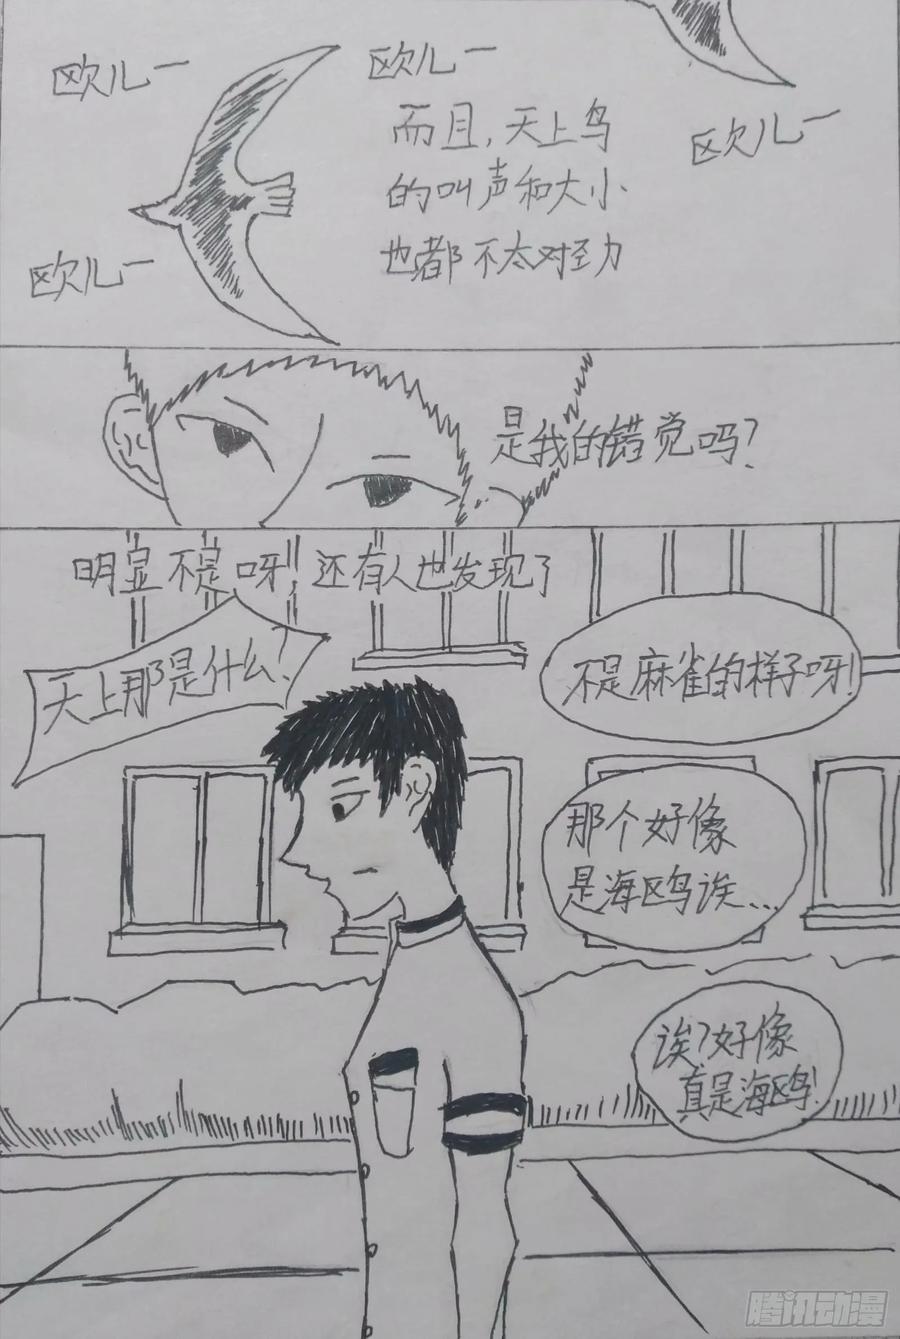 欧儿一
欧儿一
欧儿一
欧儿一
而且,天上鸟
的叫声和大小
也都不太对劲
是我的错觉吗?
明显不是呀!,还有人也发现了
天上那是什么!
不是麻雀的样子呀!
那个好像
是海鸥诶...
诶?好像
真是海鸥!
腾讯动漫